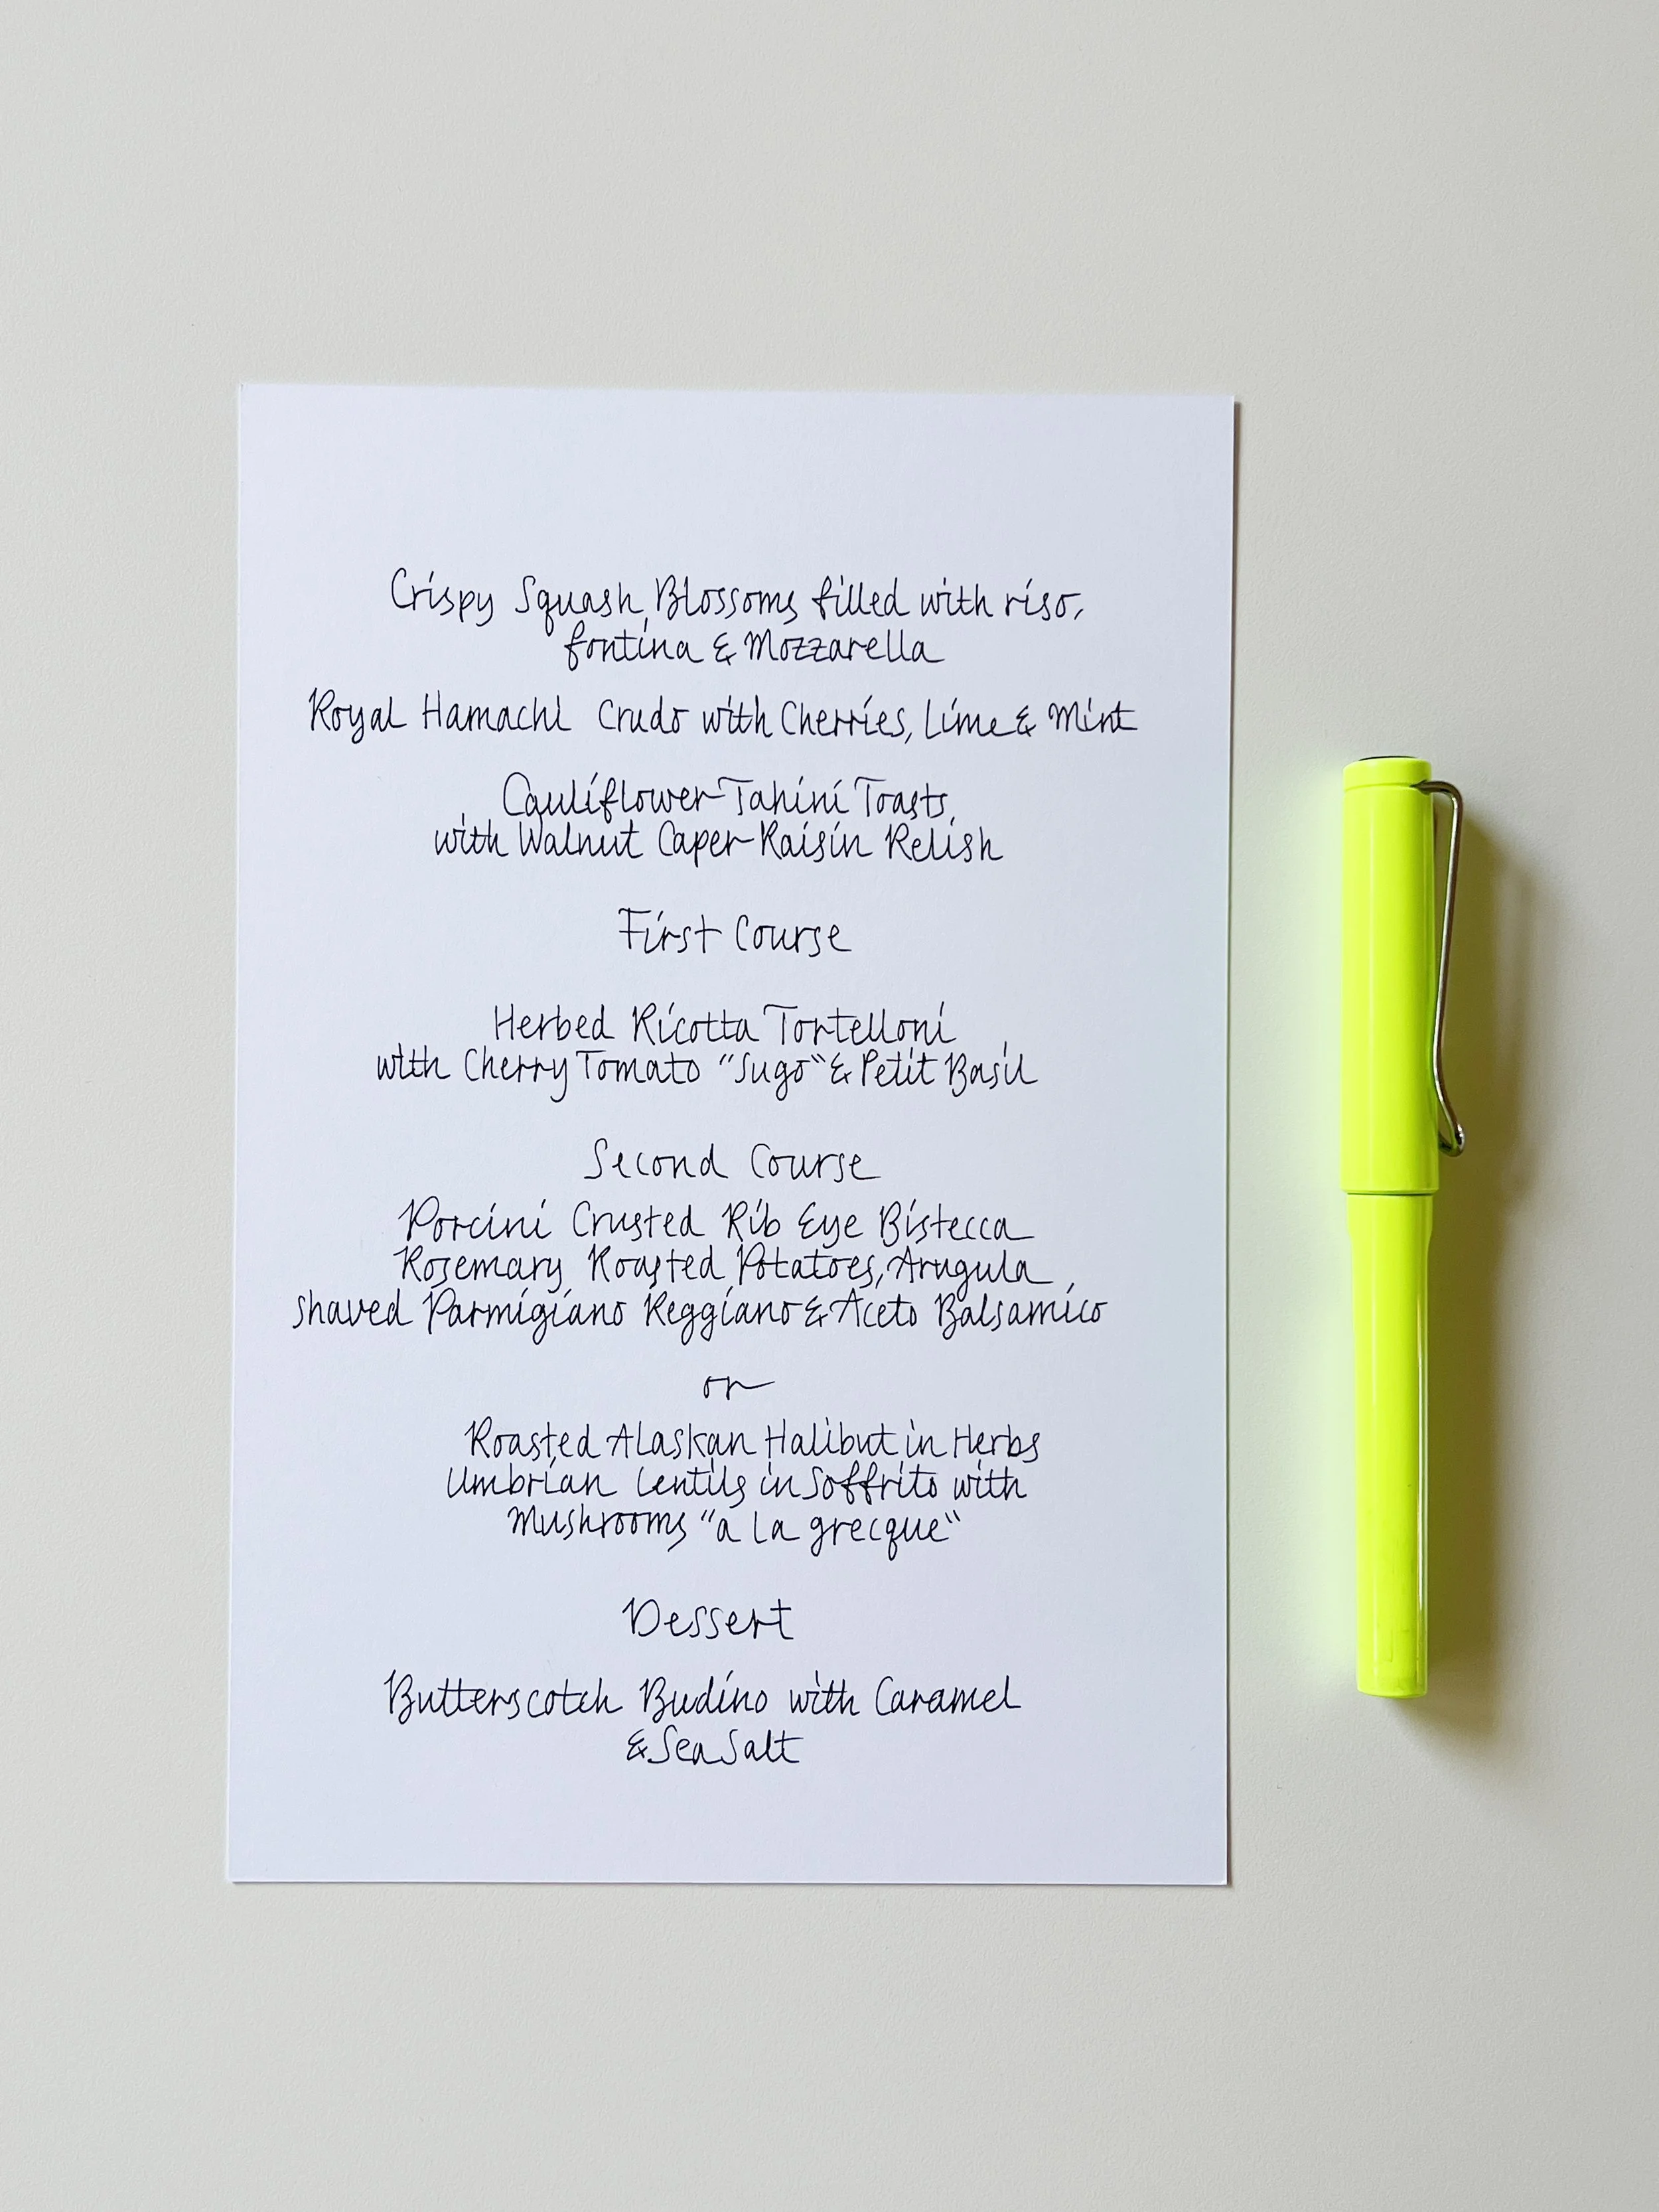 Crispy Squash Blossoms filled with riso,
fontina & Mozzarella
Royal Hamachi Crudo with Cherries, Lime & Mint
Cauliflower Tahini Toasts
with Walnut Caper Raisin Relish
First Course
Herbed Ricotta Tortelloni
with Cherry Tomato "Sugo" & Petit Basil
Second Course
Porcini Crusted Rib Eye Bistecca
Rosemary Roasted Potatoes, Arugula
shaved Parmigiano Reggiano & Aceto Balsamico
or
Roasted Alaskan Halibut in Herbs
Umbrian Lentils in Soffrito with
Mushrooms "a la grecque"
Dessert
Butterscotch Budino with Caramel
& Sea Salt